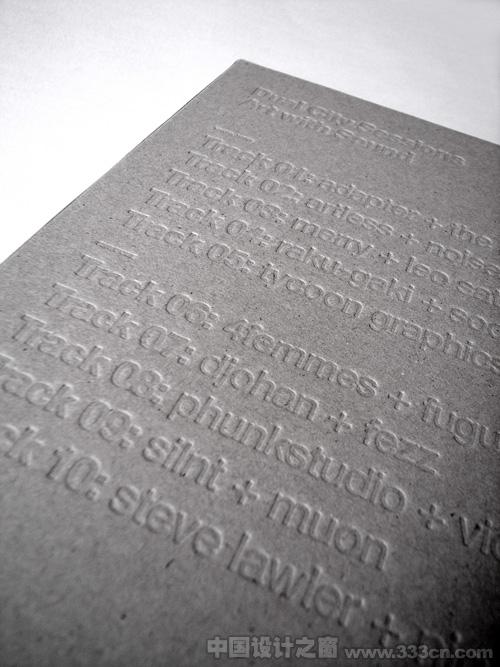 Dual City Sessions
Art with Sound
Track 01: adapter + the
Track 02: artless + noise
Track 03: merry + leo sa
Track 04: raku-gaki + soc
Track 05: tycoon graphics
Track 06: 4femmes + fugu
Track 07: djohan + fezz
Track 08: phunkstudio + vi
Track 09: silnt + muon
ck 10: steve lawler +
中国设计之窗 www.333cn.com